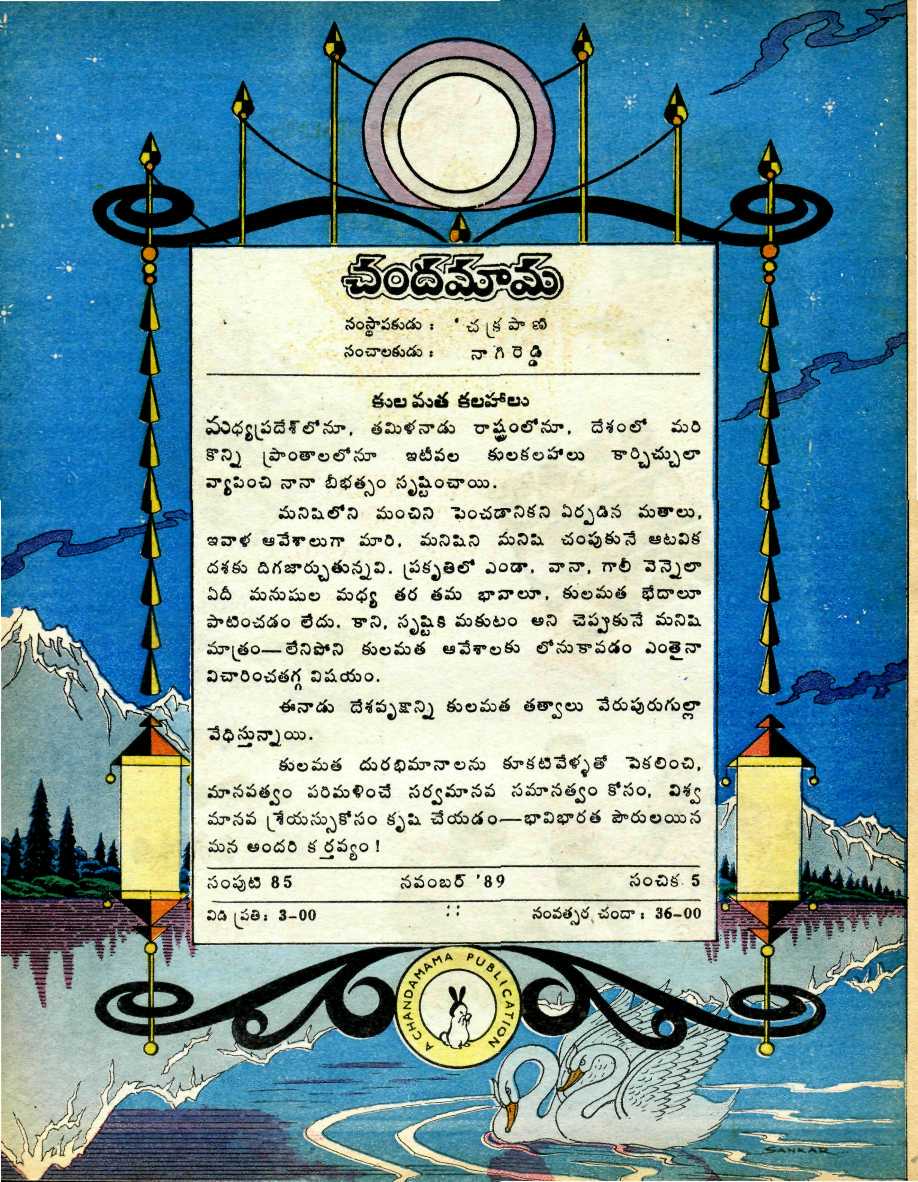 చందమామ
సంస్థాపకుడు : 'చక్రపాణి
సంచాలకుడు : నాగిరెడ్డి
కులమత కలహాలు
మధ్యప్రదేశ్‌లోనూ, తమిళనాడు రాష్ట్రంలోనూ, దేశంలో మరి
కొన్ని ప్రాంతాలలోనూ ఇటీవల కులకలహాలు కార్చిచ్చులా
వ్యాపించి నానా బీభత్సం సృష్టించాయి.
మనిషిలోని మంచిని పెంచడానికని ఏర్పడిన మతాలు,
ఇవాళ ఆవేశాలుగా మారి, మనిషిని మనిషి చంపుకునే ఆటవిక
దశకు దిగజార్చుతున్నవి. ప్రకృతిలో ఎండా, వానా, గాలీ వెన్నెలా
ఏదీ మనుషుల మధ్య తర తమ భావాలూ, కులమత భేదాలూ
పాటించడం లేదు. కాని, సృష్టికి మకుటం అని చెప్పుకునే మనిషి
మాత్రం—లేనిపోని కులమత ఆవేశాలకు లోనుకావడం ఎంతైనా
విచారించతగ్గ విషయం.
ఈనాడు దేశవృక్షాన్ని కులమత తత్వాలు వేరుపురుగుల్లా
వేధిస్తున్నాయి.
కులమత దురభిమానాలను కూకటివేళ్ళతో పెకలించి,
మానవత్వం పరిమళించే సర్వమానవ సమానత్వం కోసం, విశ్వ
మానవ శ్రేయస్సుకోసం కృషి చేయడం—భావిభారత పౌరులయిన
మన అందరి కర్తవ్యం !
సంపుటి 85 నవంబర్ '89 సంచిక 5
విడి ప్రతి : 3-00 :: సంవత్సర చందా : 36-00
A CHANDAMAMA PUBLICATION
SANKAR